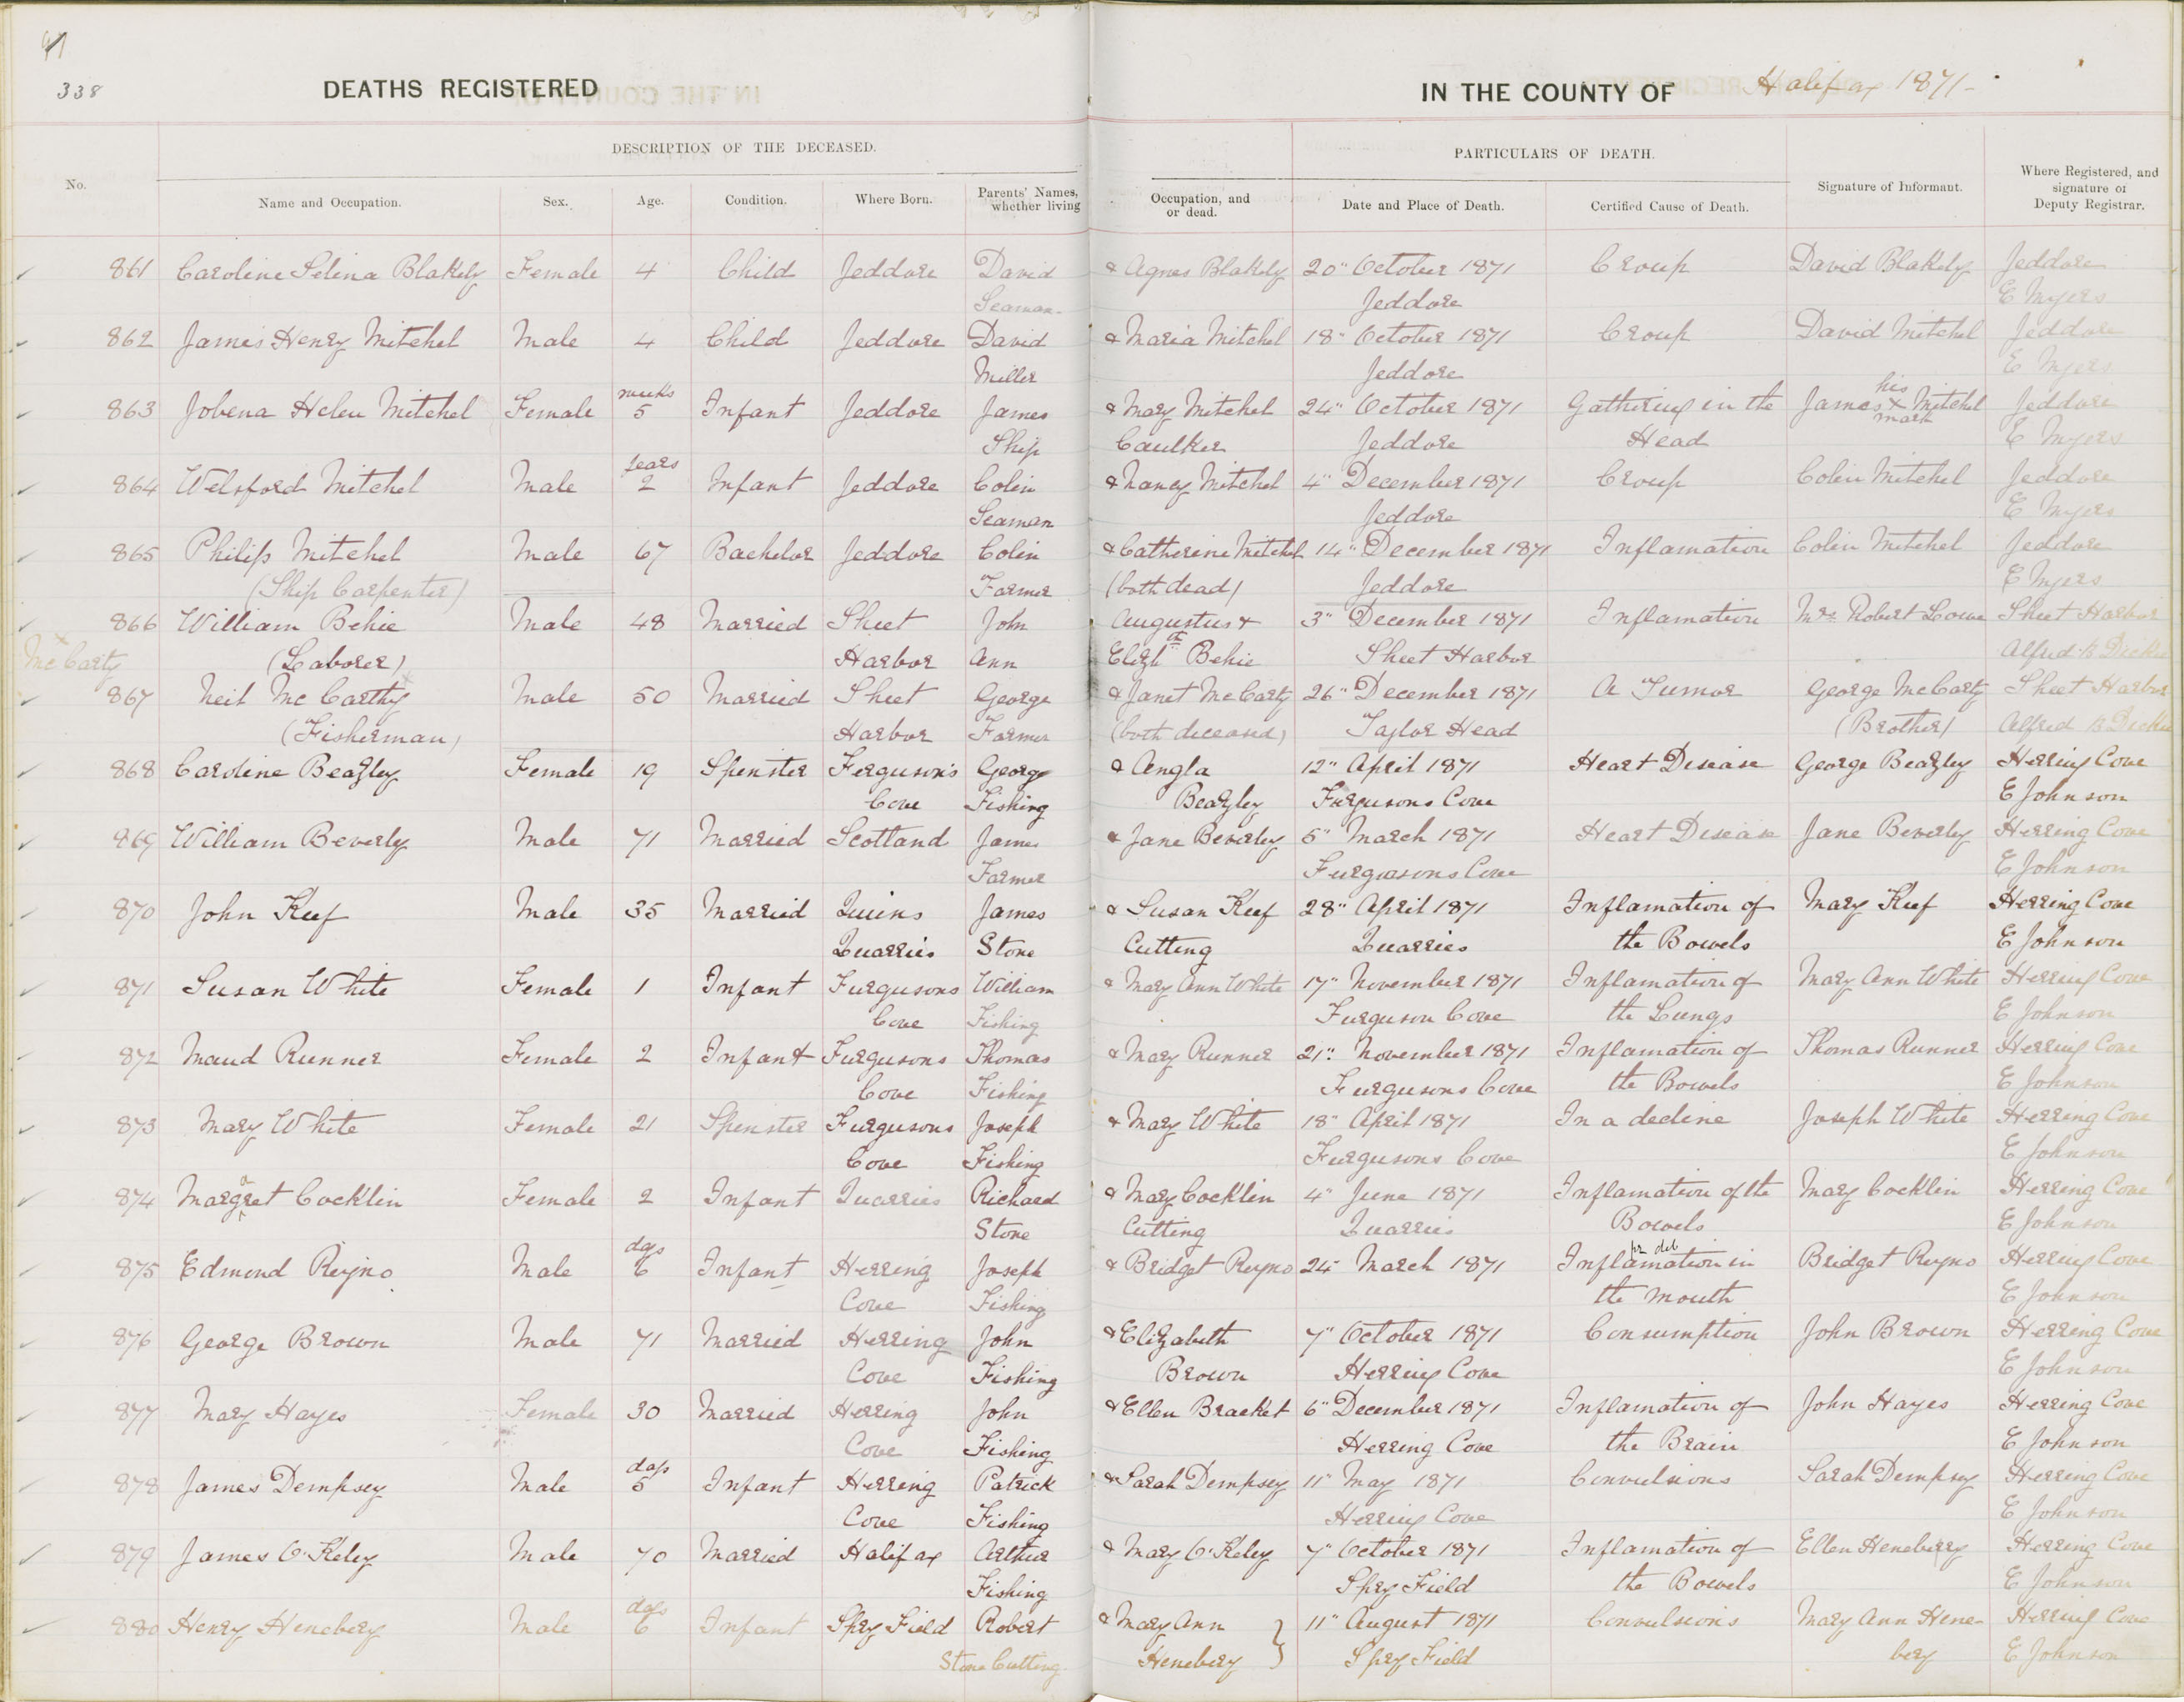 47
338
DEATHS REGISTERED IN THE COUNTY OF Halifax 1871-
DESCRIPTION OF THE DECEASED. PARTICULARS OF DEATH.
No. Name and Occupation. Sex. Age. Condition. Where Born. Parents' Names, whether living Occupation, and or dead. Date and Place of Death. Certified Cause of Death. Signature of Informant. Where Registered, and signature of Deputy Registrar.
861 Caroline Selina Blakely Female 4 Child Jeddore David & Agnes Blakely 20" October 1871 Croup David Blakely Jeddore
Seaman Jeddore E Myers
862 James Henry Mitchel Male 4 Child Jeddore David & Maria Mitchel 18" October 1871 Croup David Mitchel Jeddore
Miller Jeddore E Myers
weeks his
863 Jobena Helen Mitchel Female 5 Infant Jeddore James & Mary Mitchel 24" October 1871 Gathering in the James X Mitchel Jeddore
mark
Ship Caulker Jeddore Head E Myers
years
864 Welsford Mitchel Male 2 Infant Jeddore Colin & Nancy Mitchel 4" December 1871 Croup Colin Mitchel Jeddore
Seaman Jeddore E Myers
865 Philip Mitchel Male 67 Bachelor Jeddore Colin & Catherine Mitchel 14" December 1871 Inflamation Colin Mitchel Jeddore
(Ship Carpenter) Farmer (both dead) Jeddore E Myers
866 William Behie Male 48 Married Sheet John Augustus & 3" December 1871 Inflamation Mrs. Robert Lowe Sheet Harbor
McCarty (Laborer) Harbor Ann Elizbth Behie Sheet Harbor Alfred B Dickie
867 Neil McCarthy Male 50 Married Sheet George & Janet McCarty 26" December 1871 A Tumor George McCarty Sheet Harbor
(Fisherman) Harbor Farmer (both deceased) Taylor Head (Brother) Alfred B Dickie
868 Caroline Beazley Female 19 Spenster Ferguson's George & Angla 12" April 1871 Heart Disease George Beazley Herring Cove
Cove Fishing Beazley Furgusons Cove E Johnson
869 William Beverly Male 71 Married Scotland James & Jane Beverley 5" March 1871 Heart Disease Jane Beverley Herring Cove
Farmer Furgusons Cove E Johnson
870 John Keef Male 35 Married Quins James & Susan Keef 28" April 1871 Inflamation of Mary Keef Herring Cove
Quarries Stone Cutting Quarries the Bowels E Johnson
871 Susan White Female 1 Infant Furgusons William & Mary Ann White 17" November 1871 Inflamation of Mary Ann White Herring Cove
Cove Fishing Furguson Cove the Lungs E Johnson
872 Maud Runner Female 2 Infant Furgusons Thomas & Mary Runner 21" November 1871 Inflamation of Thomas Runner Herring Cove
Cove Fishing Furgusons Cove the Bowels E Johnson
873 Mary White Female 21 Spenster Furgusons Joseph & Mary White 18" April 1871 In a decline Joseph White Herring Cove
Cove Fishing Furgusons Cove E Johnson
874 Margaret Cocklin Female 2 Infant Quarries Richard & Mary Cocklin 4" June 1871 Inflamation of the Mary Cocklin Herring Cove
Stone Cutting Quarries Bowels E Johnson
days
875 Edmond Reyno Male 6 Infant Herring Joseph & Bridget Reyno 24" March 1871 Inflamation in Bridget Reyno Herring Cove
Cove Fishing the mouth E Johnson
876 George Brown Male 71 Married Herring John & Elizabeth 7" October 1871 Consumption John Brown Herring Cove
Cove Fishing Brown Herring Cove E Johnson
877 Mary Hayes Female 30 Married Herring John & Ellen Bracket 6" December 1871 Inflamation of John Hayes Herring Cove
Cove Fishing Herring Cove the Brain E Johnson
days
878 James Dempsey Male 5 Infant Herring Patrick & Sarah Dempsey 11" May 1871 Convulsions Sarah Dempsey Herring Cove
Cove Fishing Herring Cove E Johnson
879 James O'Keley Male 70 Married Halifax Arthur & Mary O'Keley 7" October 1871 Inflamation of Ellen Heneberry Herring Cove
Fishing Spry Field the Bowels E Johnson
days
880 Henry Henebery Male 6 Infant Spry Field Robert & Mary Ann 11" August 1871 Convulsions Mary Ann Hene- Herring Cove
Stone Cutting Henebery Spry Field bery E Johnson